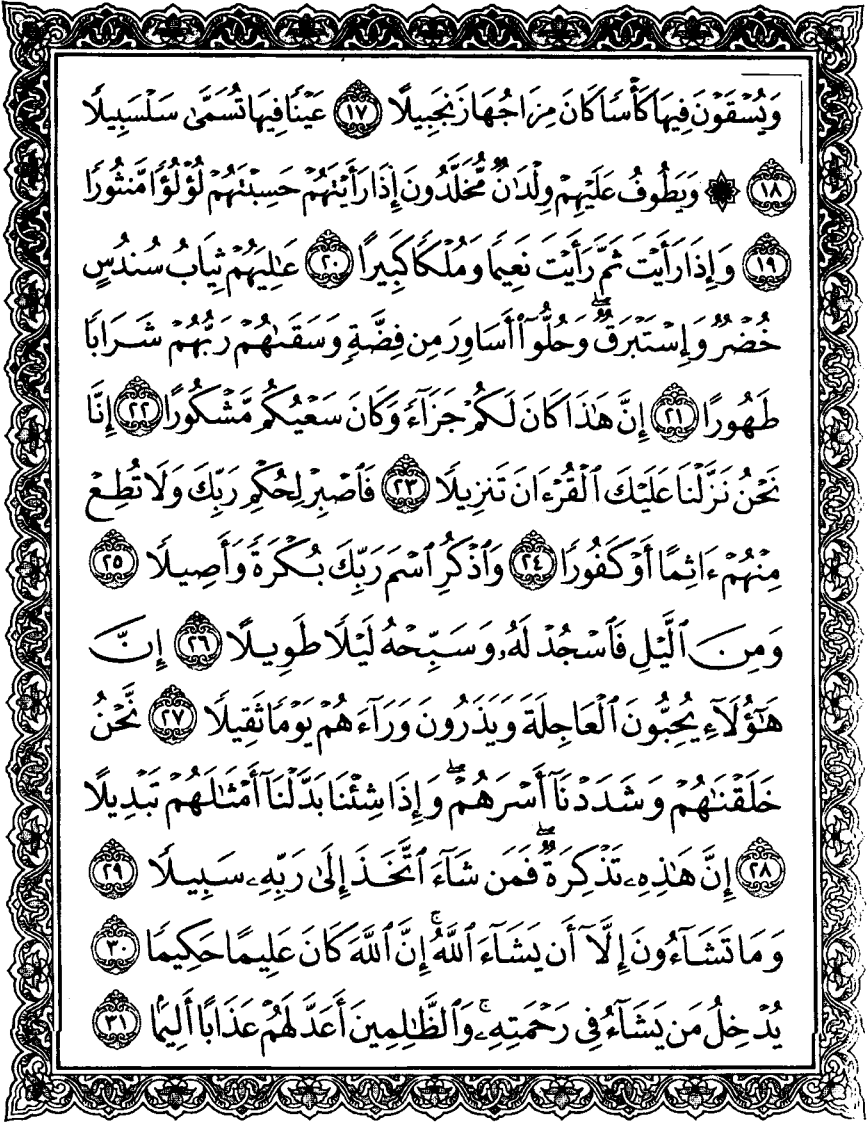 وَيُسْقَوْنَ فِيهَا كَأْسًا كَانَ مِزَاجُهَا زَنجَبِيلًا ١٧ عَيْنًا فِيهَا تُسَمَّىٰ سَلْسَبِيلًا
١٨ ۞ وَيَطُوفُ عَلَيْهِمْ وِلْدَٰنٌ مُّخَلَّدُونَ إِذَا رَأَيْتَهُمْ حَسِبْتَهُمْ لُؤْلُؤًا مَّنثُورًا
١٩ وَإِذَا رَأَيْتَ ثَمَّ رَأَيْتَ نَعِيمًا وَمُلْكًا كَبِيرًا ٢٠ عَٰلِيَهُمْ ثِيَابُ سُندُسٍ
خُضْرٌ وَإِسْتَبْرَقٌ ۖ وَحُلُّوٓا۟ أَسَاوِرَ مِن فِضَّةٍ وَسَقَىٰهُمْ رَبُّهُمْ شَرَابًا
طَهُورًا ٢١ إِنَّ هَٰذَا كَانَ لَكُمْ جَزَآءً وَكَانَ سَعْيُكُم مَّشْكُورًا ٢٢ إِنَّا
نَحْنُ نَزَّلْنَا عَلَيْكَ ٱلْقُرْءَانَ تَنزِيلًا ٢٣ فَٱصْبِرْ لِحُكْمِ رَبِّكَ وَلَا تُطِعْ
مِنْهُمْ ءَاثِمًا أَوْ كَفُورًا ٢٤ وَٱذْكُرِ ٱسْمَ رَبِّكَ بُكْرَةً وَأَصِيلًا ٢٥
وَمِنَ ٱلَّيْلِ فَٱسْجُدْ لَهُۥ وَسَبِّحْهُ لَيْلًا طَوِيلًا ٢٦ إِنَّ
هَٰٓؤُلَآءِ يُحِبُّونَ ٱلْعَاجِلَةَ وَيَذَرُونَ وَرَآءَهُمْ يَوْمًا ثَقِيلًا ٢٧ نَّحْنُ
خَلَقْنَٰهُمْ وَشَدَدْنَآ أَسْرَهُمْ ۖ وَإِذَا شِئْنَا بَدَّلْنَآ أَمْثَٰلَهُمْ تَبْدِيلًا
٢٨ إِنَّ هَٰذِهِۦ تَذْكِرَةٌ ۖ فَمَن شَآءَ ٱتَّخَذَ إِلَىٰ رَبِّهِۦ سَبِيلًا ٢٩
وَمَا تَشَآءُونَ إِلَّآ أَن يَشَآءَ ٱللَّهُ ۚ إِنَّ ٱللَّهَ كَانَ عَلِيمًا حَكِيمًا ٣٠
يُدْخِلُ مَن يَشَآءُ فِى رَحْمَتِهِۦ ۚ وَٱلظَّٰلِمِينَ أَعَدَّ لَهُمْ عَذَابًا أَلِيمًۢا ٣١